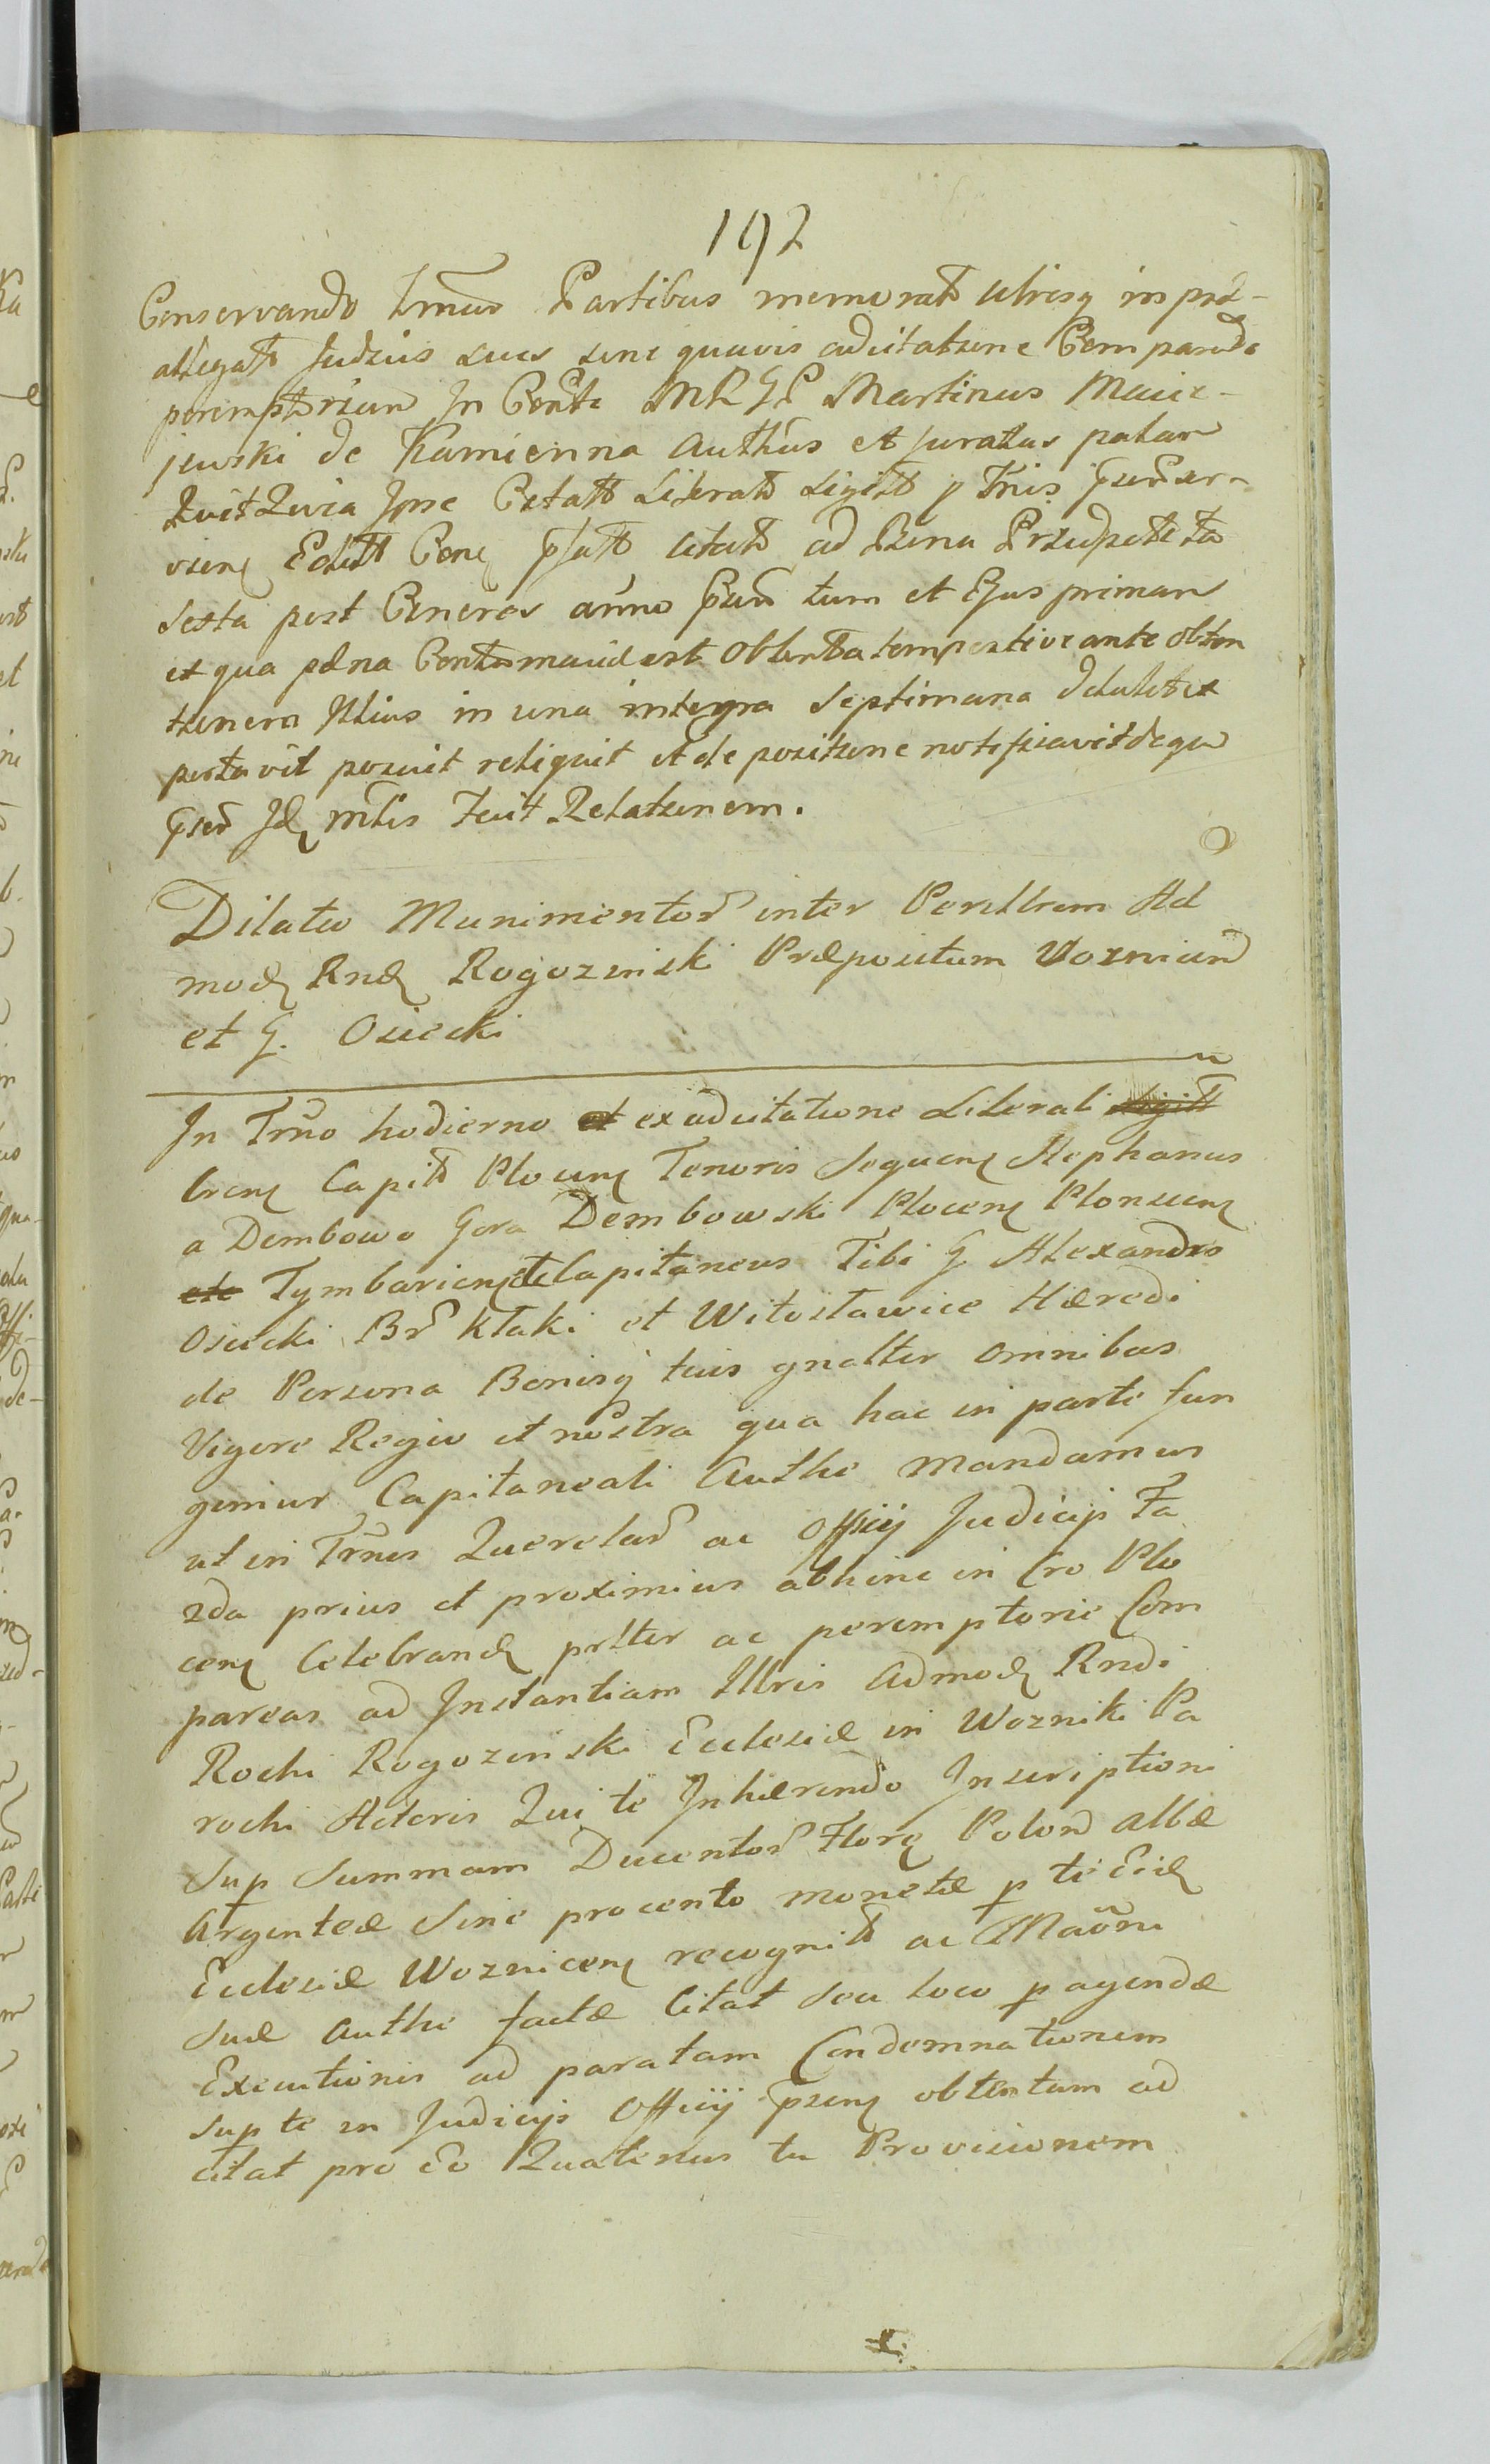 192
Conservando trmũs Partibus memorat̃ utrisq in præ-
allegat̃ Judiciis suis sine quavis adcitatione Comparendi
peremptorium In Cont̃ MRGP Martinus Macie-
jewski de Kamienna Auth̃us et Juratus palam
Quia Ipse Literat̃ Sigill̃
Edit̃ citat̃ ad Bona
Sexta post Cineres anno tum et Ejus primam
ex qua pæna est Obtenta tempestive ante obten
tionem Illius in una integra Septimana detulit
portavit posuit reliquit et de positione notificavit de quo
Idẽ mtris fecit Relationem.
Dilatio Munimentor̃ inter Perillrem Ad
mod Rnd Rogozinski Præpositum Woznicen̄
et G. Osiecki
In Trño hodierno et ex adcitatione Literali Sigill̃
Cren Capit̃ Plocen Tenoris Sequen Stephanus
a Dembowa Gora Dembowski Plocen Plonscen
etc Tymbarien etc Capitaneus Tibi G Alexandro
Osiecki Br̃ Kłaki et Witosławice Hæredi
de Persona Bonisq tuis gnalter omnibus
Vigore Regio et nostra qua hac in parte fun
gimur Capitaneali Authe mandamus
ut in Trñis Querelar̃ ac Officij Judicijs Fa
2da prius et proximius abhinc in Cro Plo
cen Celebrand prlter ac peremptorie Com
pareas ad Instantiam Illris Admod Rndi
Rochi Rogozinski Ecclesiæ in Wozniki Pa
rochi Actoris Qui te Inhærendo Inscriptioni
Sup Summam Ducentor̃ Flor Polon̄ albæ
Argenteæ Sine procento monetæ p te Eid
Ecclesiæ Woznicen recognit̃ ac Maõni
Suæ Authe factæ Citat Seu loco peragendæ
Executionis ad paratam Condemnationem
Sup te in Judicijs Officij p̄sen obtentam ad
citat pro Eo Quatenus tu Provisionem